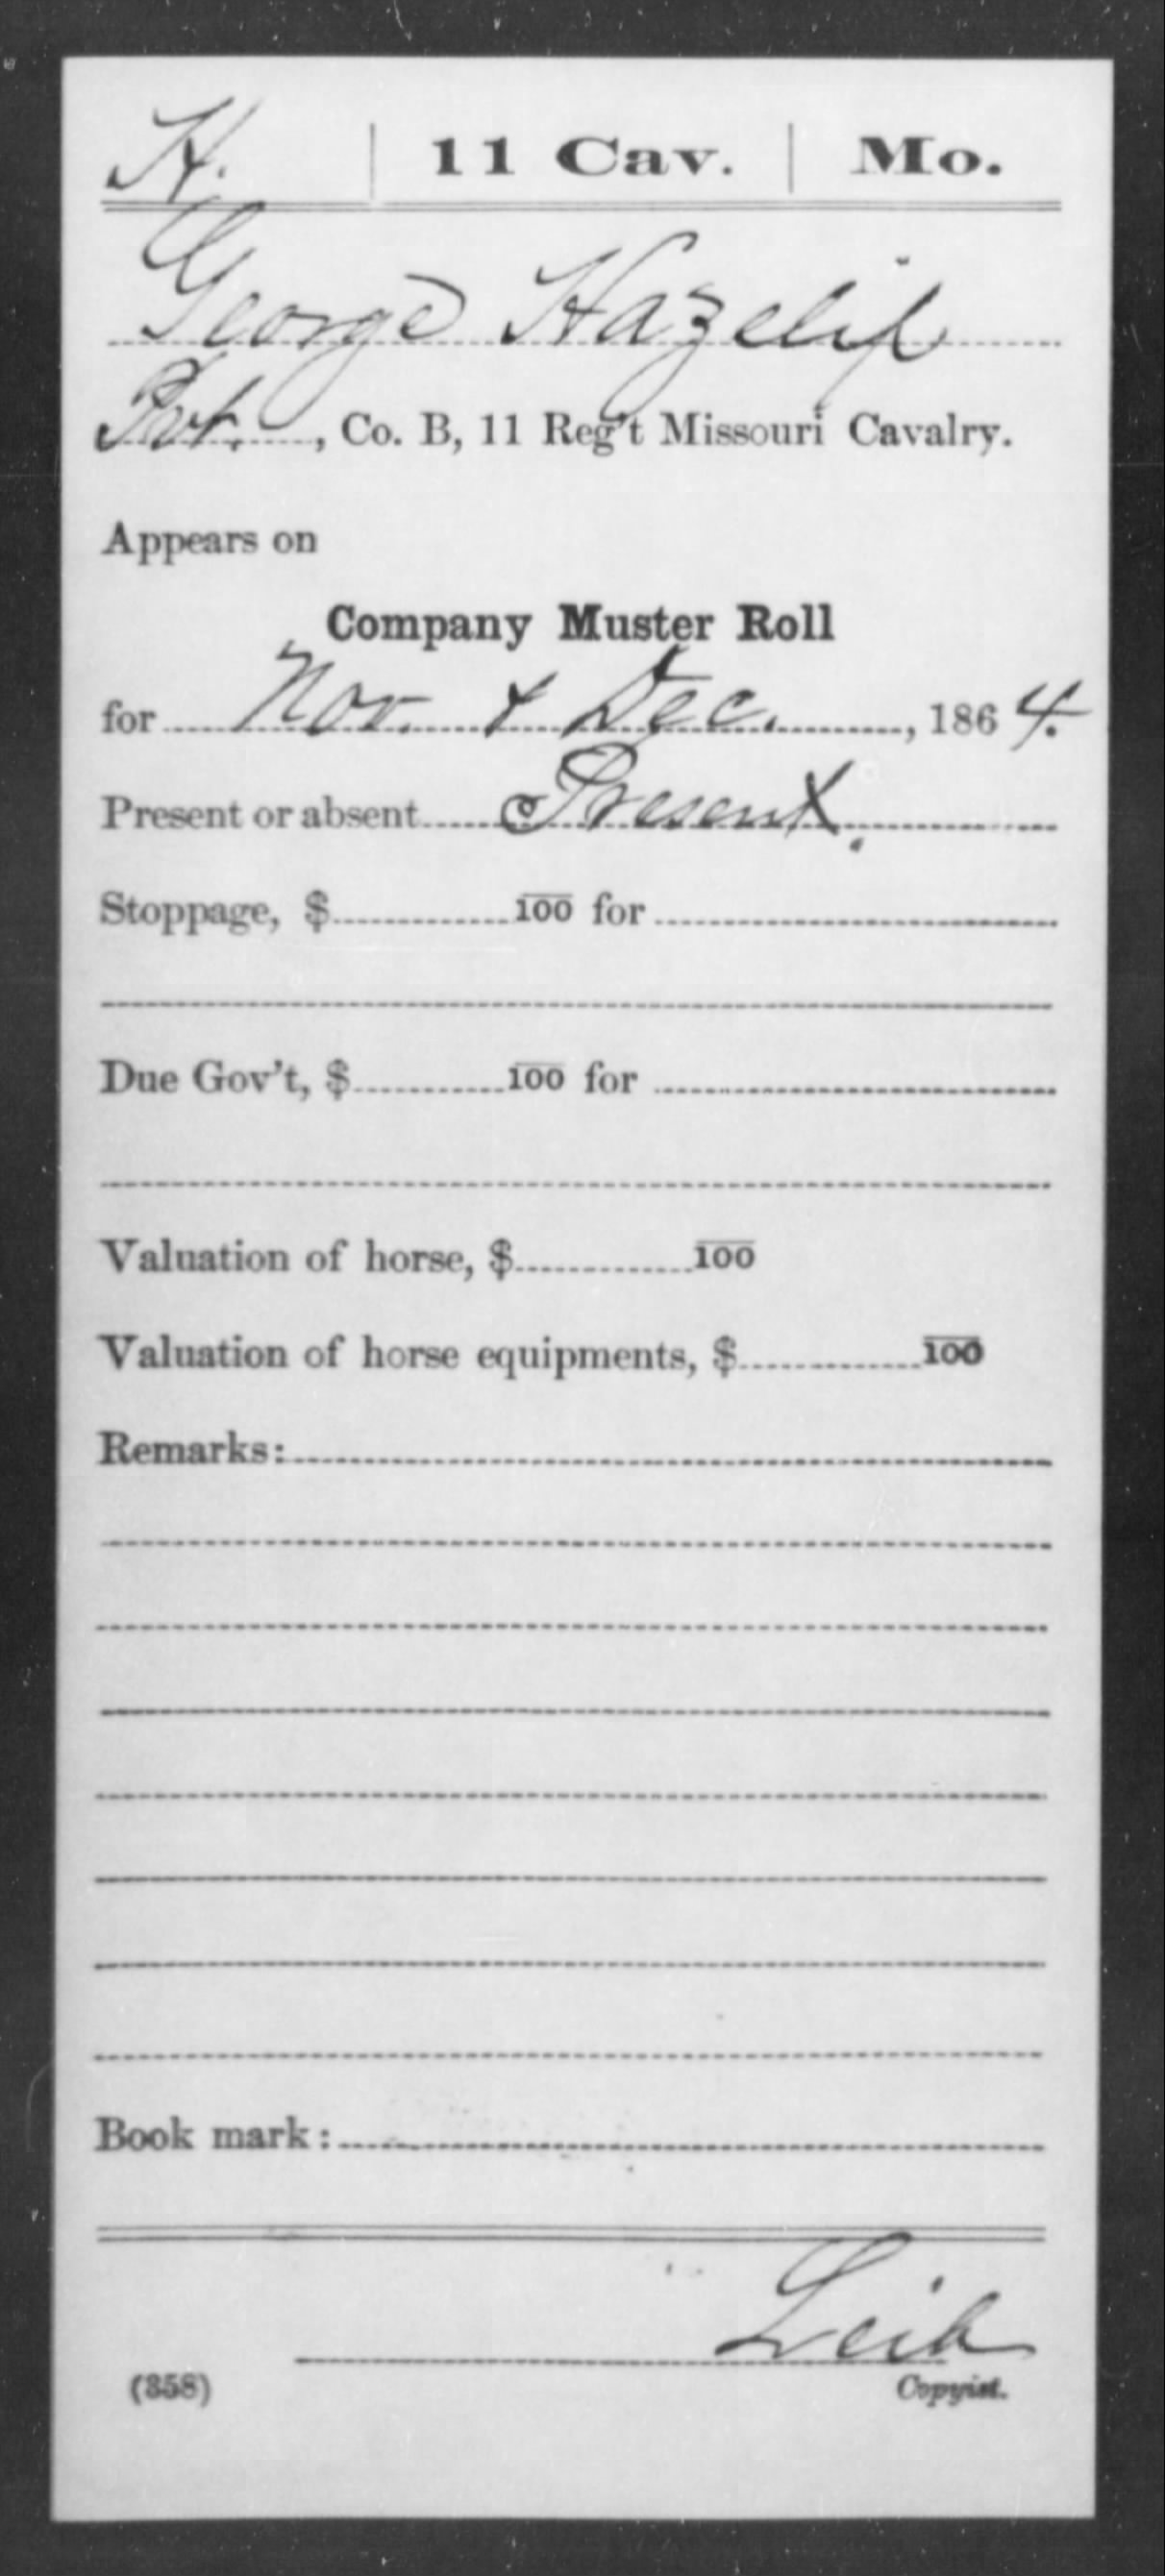 H. | 11 Cav. | Mo.
George Hazelip
Pvt., Co. B, 11 Reg't Missouri Cavalry.
Appears on
Company Muster Roll
for Nov. & Dec., 1864.
Present or absent Present.
Stoppage, $ 100 for
Due Gov't, $ 100 for
Valuation of horse, $ 100
Valuation of horse equipments, $ 100
Remarks:
Book mark:
Leib
(358) Copyist.